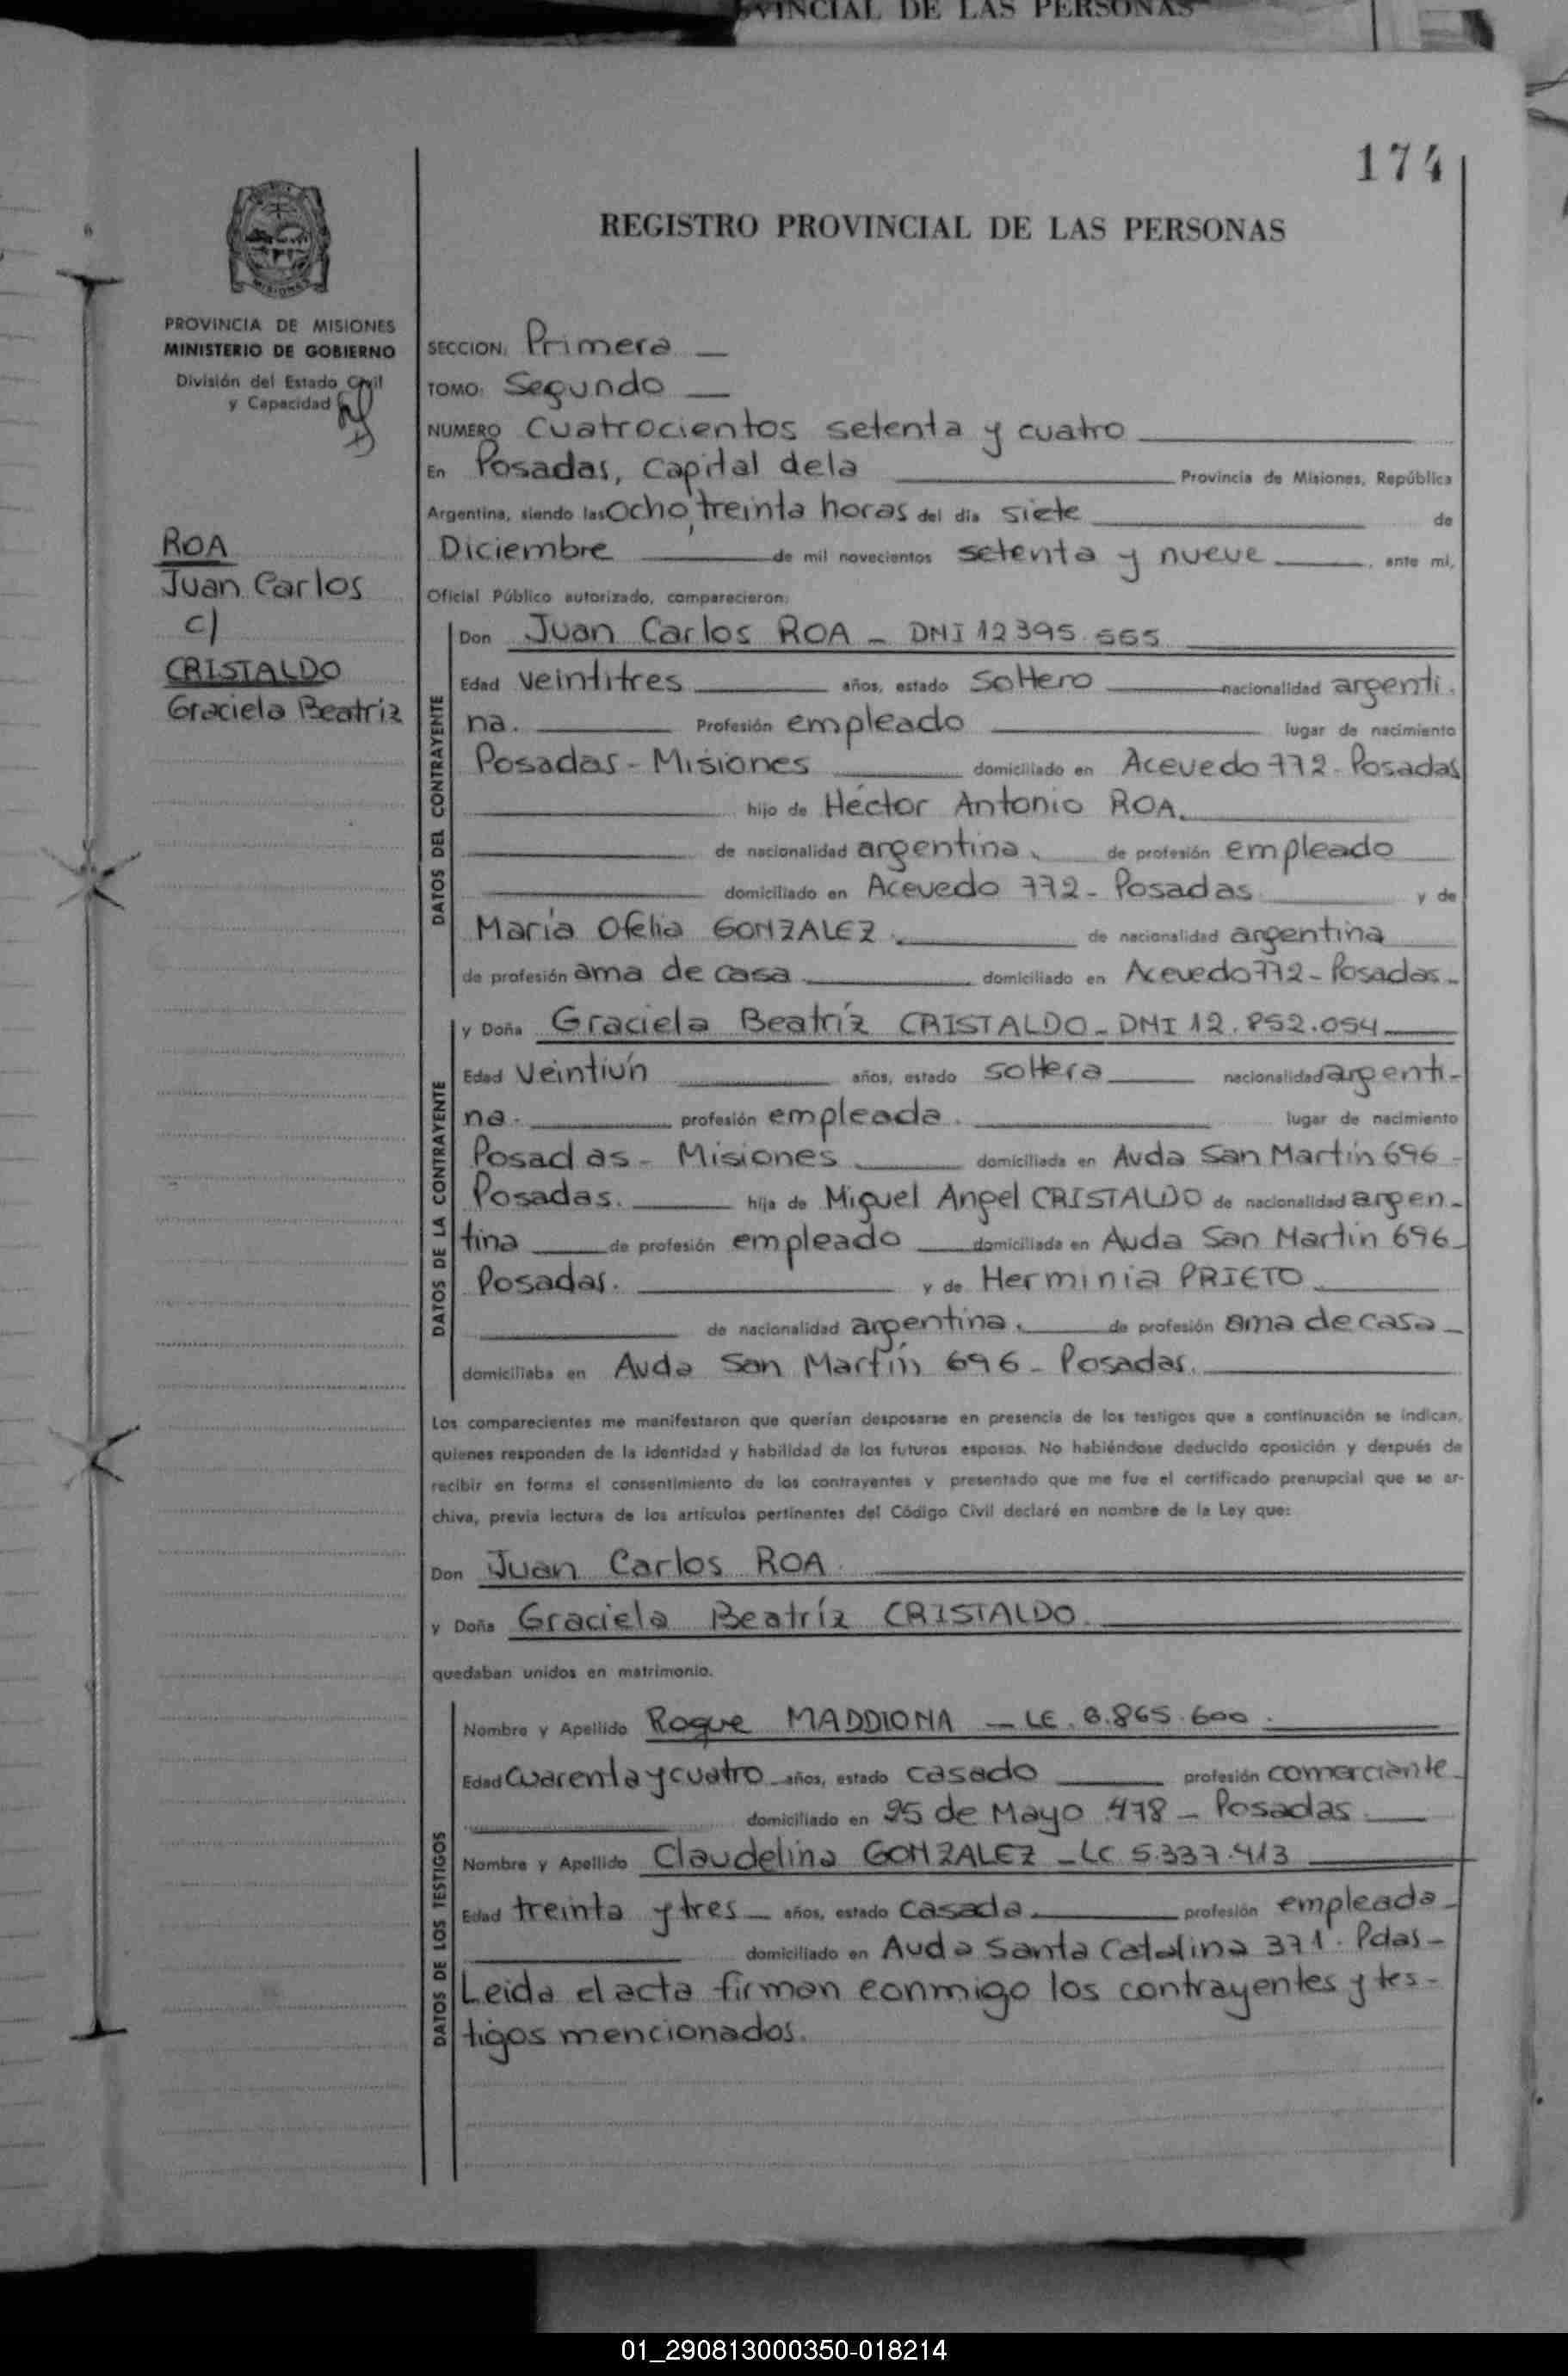 VINCIAL DE LAS PERSONAS
174
REGISTRO PROVINCIAL DE LAS PERSONAS
MISIONES
PROVINCIA DE MISIONES
MINISTERIO DE GOBIERNO
División del Estado Civil
y Capacidad
ROA
Juan Carlos
c/
CRISTALDO
Graciela Beatríz
SECCION: Primera
TOMO: Segundo
NUMERO Cuatrocientos setenta y cuatro
En Posadas, Capital de la Provincia de Misiones, República
Argentina, siendo las ocho, treinta horas del día siete de
Diciembre de mil novecientos setenta y nueve, ante mí,
Oficial Público autorizado, comparecieron:
DATOS DEL CONTRAYENTE
Don Juan Carlos ROA - DNI 12395.565
Edad veintitres años, estado soltero nacionalidad argenti.
na. Profesión empleado lugar de nacimiento
Posadas - Misiones domiciliado en Acevedo 772 - Posadas
hijo de Héctor Antonio ROA.
de nacionalidad argentina. de profesión empleado
domiciliado en Acevedo 772 - Posadas y de
María Ofelia GONZALEZ. de nacionalidad argentina
de profesión ama de casa domiciliado en Acevedo 772 - Posadas -
DATOS DE LA CONTRAYENTE
y Doña Graciela Beatríz CRISTALDO - DNI 12.852.054
Edad Veintiún años, estado soltera nacionalidad argenti-
na. profesión empleada. lugar de nacimiento
Posadas - Misiones domiciliada en Avda San Martín 696 -
Posadas. hija de Miguel Angel CRISTALDO de nacionalidad argen-
tina de profesión empleado domiciliada en Avda San Martin 696
Posadas. y de Herminia PRIETO
de nacionalidad argentina. de profesión ama de casa
domiciliaba en Avda San Martín 696 - Posadas.
Los comparecientes me manifestaron que querían desposarse en presencia de los testigos que a continuación se indican,
quienes responden de la identidad y habilidad de los futuros esposos. No habiéndose deducido oposición y después de
recibir en forma el consentimiento de los contrayentes y presentado que me fue el certificado prenupcial que se ar-
chiva, previa lectura de los artículos pertinentes del Código Civil declaré en nombre de la Ley que:
Don Juan Carlos ROA.
y Doña Graciela Beatríz CRISTALDO.
quedaban unidos en matrimonio.
DATOS DE LOS TESTIGOS
Nombre y Apellido Roque MADDIONA - LE. 8.865.600.
Edad Cuarenta y cuatro años, estado casado profesión comerciante
domiciliado en 25 de Mayo 478 - Posadas
Nombre y Apellido Claudelina GONZALEZ - LC 5.337.413
Edad treinta y tres años, estado casada profesión empleada
domiciliado en Avda Santa Catalina 371. Pdas -
Leida el acta firman conmigo los contrayentes y tes-
tigos mencionados.
01_290813000350-018214